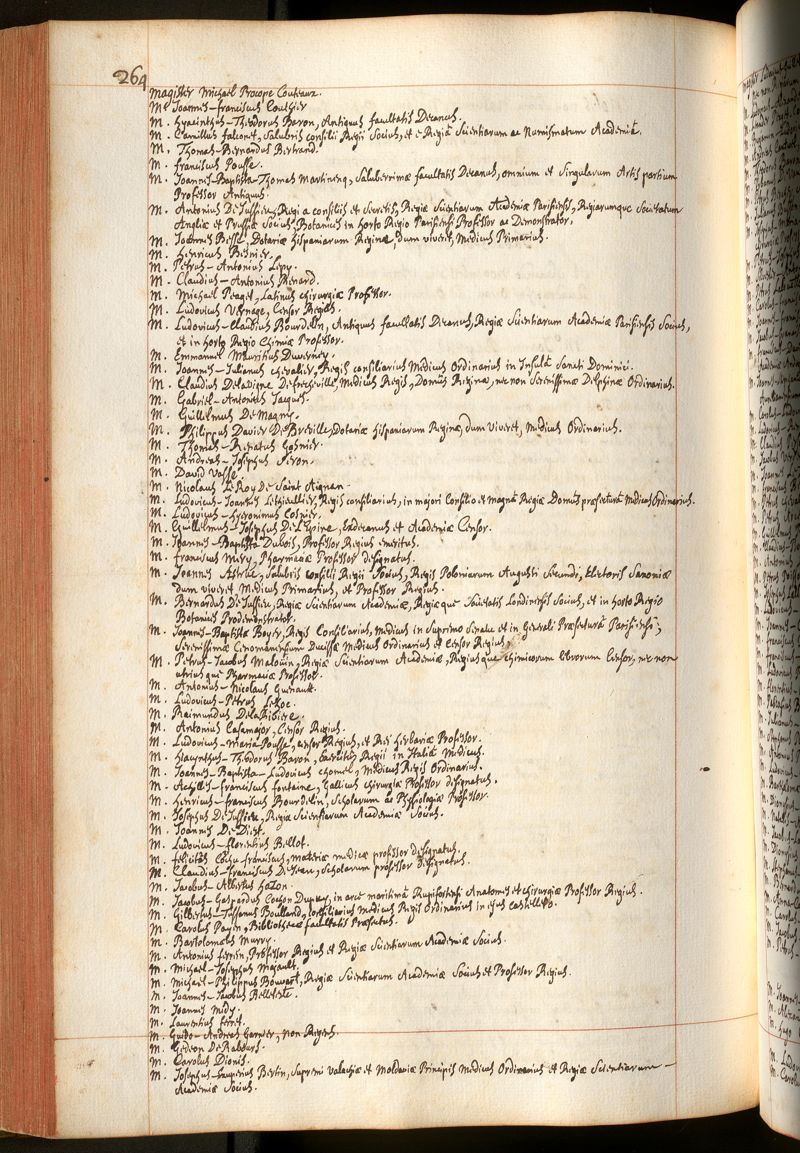 264
Magister Michael Procope Couteaux.
Mr Joannes-franciscus Couthier
M. Hyacinthus-Theodorus Baron, Antiquus facultatis Decanus.
M. Camillus falconet, Salubris consilii Regii Socius, et è Regia Scientiarum ac Numismatum Academiâ.
M. Thomas-Bernardus Bertrand.
M. franciscus Pousse.
M. Joannes-Baptista-Thomas Martinenq, Saluberrimæ facultatis Decanus, omnium et Singularum Artis partium
Professor Antiquus.
M. Antonius De Jussieu, Regi a consiliis et Secretis, Regiæ Scientiarum Academiæ Parisiensis, Regiarumque Societatum
Angliæ et Prussiæ Socius, Botanices in horto Regio Parisiensi Professor ac Demonstrator.
M. Joannes Besse, Dotariæ hispaniarum Reginæ, dum viveret, Medicus Primarius.
M. Henricus Besnier.
M. Petrus-Antonius Lepy.
M. Claudius-Antonius Renard.
M. Michael Peaget, Latinus chirurgiæ Professor.
M. Ludovicus Vernage, Censor Regius.
M. Ludovicus-Claudius Bourdelin, Antiquus facultatis Decanus, Regiæ Scientiarum Academiæ Parisiensis Socius,
et in horto Regio Chimiæ Professor.
M. Emmanuel Mauritius Duverney.
M. Joannes-Julianus chevalier, Regis consiliarius Medicus Ordinarius in Insulâ Sancti Dominici.
M. Claudius Delavigne Defrecheville, Medicus Regis, Domûs Reginæ, nec non Serenissimæ Delphinæ Ordinarius.
M. Gabriel-Antonius Jacques.
M. Guillelmus De Magny.
M. Philippus Davier De Breville, Dotariæ hispaniarum Reginæ, dum viveret, Medicus Ordinarius.
M. Thomas-Renatus Gasnier.
M. Andreas-Josephus Seron.
M. David Vasse.
M. Nicolaus LeRoy De Saint Aignan.
M. Ludovicus-Joannes Lethieullier, Regis consiliarius, in majori Consilio et magnâ Regiæ Domûs præfecturâ Medicus Ordinarius.
M. Ludovicus-hyeronimus Cosnier.
M. Guillelmus-Josephus De L'Epine, Exdecanus et Academiæ Censor.
M. Joannes-Baptista Dubois, Professor Regius emeritus.
M. franciscus Mery, Pharmaciæ Professor designatus.
M. Joannes Astruc, Salubris consilii Regii Socius, Regis Poloniarum Augusti Secundi, Electoris Saxoniæ
dum viveret, Medicus Primarius, et Professor Regius.
M. Bernardus De Jussieu, Regiæ Scientiarum Academiæ, Regiæque Societatis Londinensis Socius, et in horto Regio
Botanices Prodemonstrator.
M. Joannes-Baptista Boyer, Regis Consiliarius, Medicus in Supremo Senatu et in Generali Præfecturâ Parisiensi,
Serenissimæ Cenomanensium Ducissæ Medicus Ordinarius et Censor Regius.
M. Petrus-Jacobus Malouin, Regiæ Scientiarum Academiæ, Regiusque chimicorum librorum Censor, nec non
utriusque Pharmaciæ Professor.
M. Antonius-Nicolaus Guenault.
M. Ludovicus-Petrus LeHoc.
M. Raimundus DelaRibiere.
M. Antonius Casamajor, Censor Regius.
M. Ludovicus-Maria Pousse, censor Regius, et Rei herbariæ Professor.
M. Hyacynthus-Theodorus Baron, Exercitus Regii in Italiâ Medicus.
M. Joannes-Baptista-Ludovicus chomel, Medicus Regis Ordinarius.
M. Achilles-franciscus fontaine, Gallicus chirurgiæ Professor designatus.
M. Henricus-franciscus Bourdelin, Scholarum ac Physiologiæ Professor.
M. Josephus De Jussieu, Regiæ Scientiarum Academiæ Socius.
M. Joannes De Diest.
M. Ludovicus-florentius Bellot.
M. felicitas Cochu franciscus, materiæ medicæ professor designatus.
M. Claudius-franciscus De Jean, Scholarum professor designatus.
M. Jacobus-Albertus hazon.
M. Jacobus-Gaspardus Cochon Dupuy, in arce maritimâ Rupifortensi Anatomes et chirurgiæ Professor Regius.
M. Gilbertus-Tussanus Boulland, Consiliarius Medicus Regis Ordinarius in ejus Castelleto.
M. Carolus Payen, Bibliothecæ facultatis Præfectus.
M. Bartolomæus Murry.
M. Antonius ferrein, Professor Regius et Regiæ Scientiarum Academiæ Socius.
M. Michael-Josephus Majault.
M. Michael-Philippus Bouvart, Regiæ Scientiarum Academiæ Socius et Professor Regius.
M. Joannes-Jacobus Belleteste.
M. Joannes Midy.
M. Laurentius ferret.
M. Guido-Andreas Garnier, non Regens.
M. Gedeon DeRabours.
M. Carolus Dionis.
M. Josephus-Exuperius Bertin, Supremi Valachiæ et Moldaviæ Principis Medicus Ordinarius et Regiæ Scientiarum
Academiæ Socius.